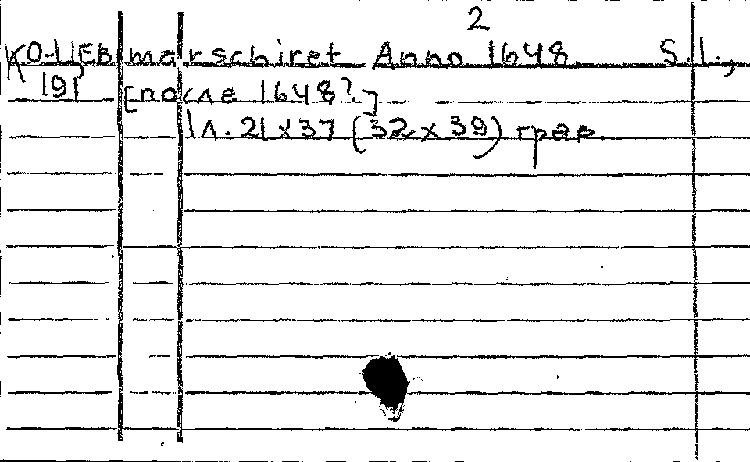 2
КО-ЦЕВ marschiret Anno 1648 S.l.,
191 [после 1648?]
1л. 21x37 (32x39) грав.